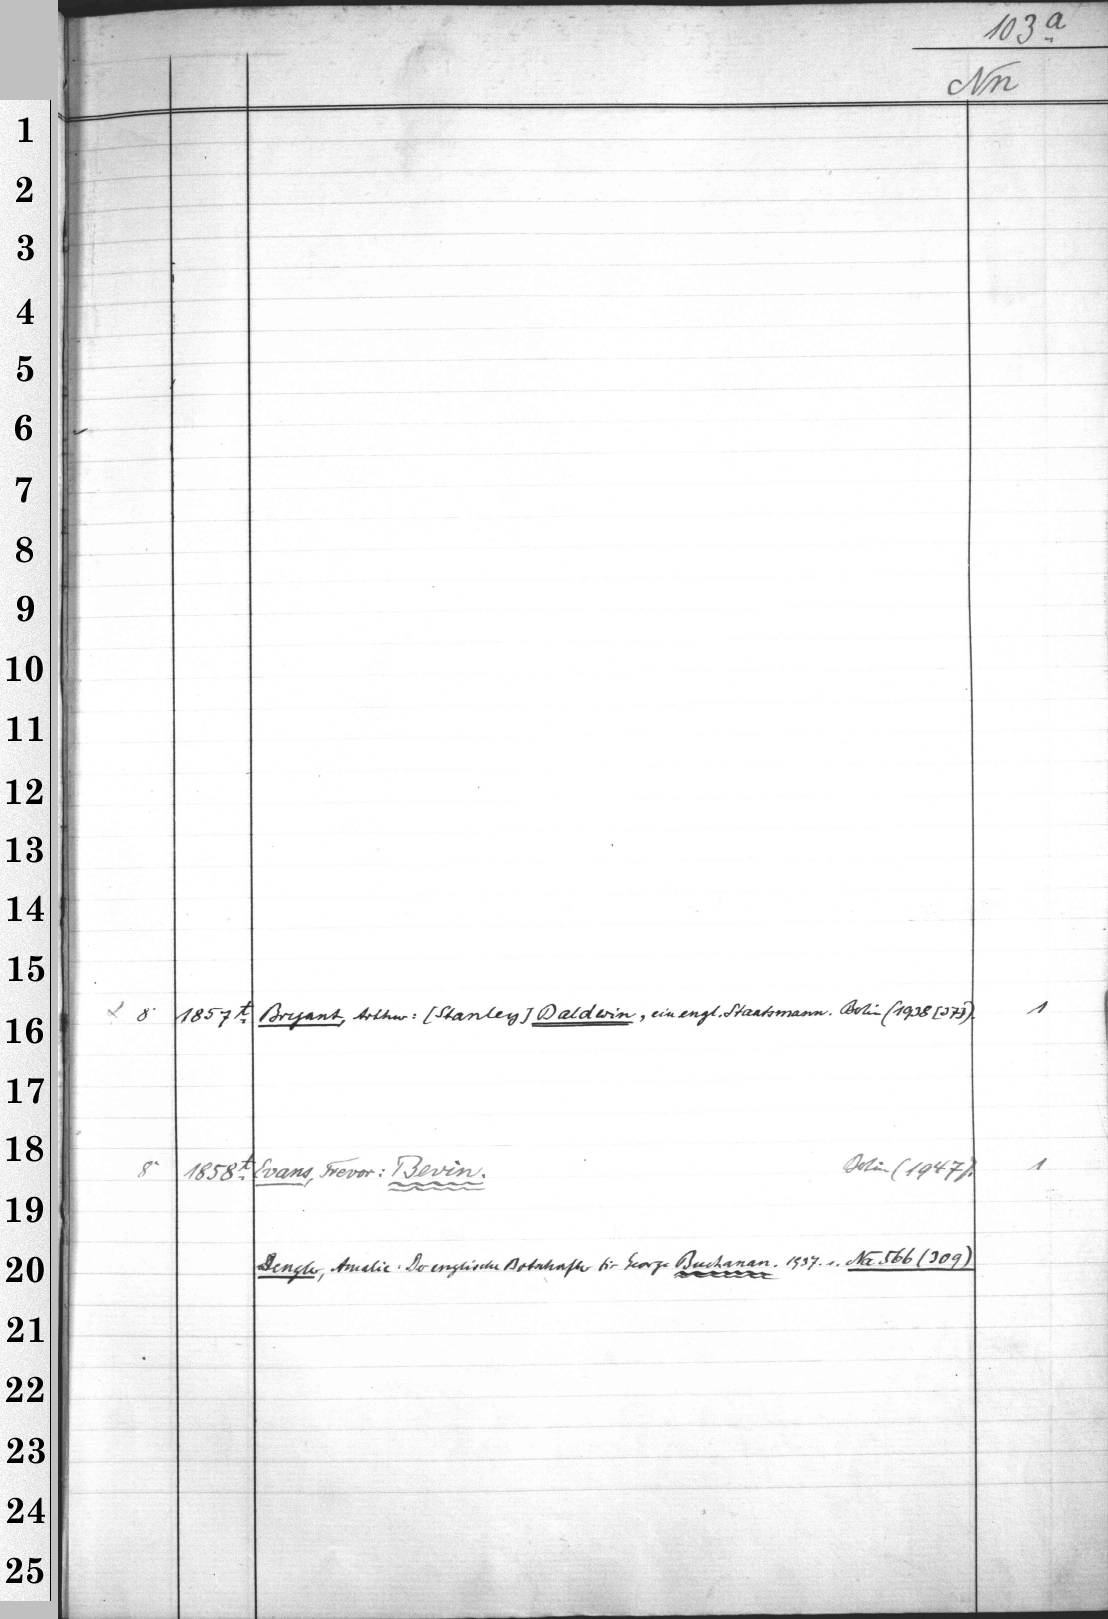 103 a
Nn
1
2
3
4
5
6
7
8
9
10
11
12
13
14
15
8° 1857 t Bryant, Arthur: [Stanley] Baldwin, ein engl. Staatsmann. Berlin (1938 [37]). 1
16
17
18
8° 1858 t Evans, Trevor: Bevin. Berlin (1947). 1
19
20 Dengler, Amalie: Der englische Botschafter Sir George Buchanan. 1937. s. Na 566 (309)
21
22
23
24
25